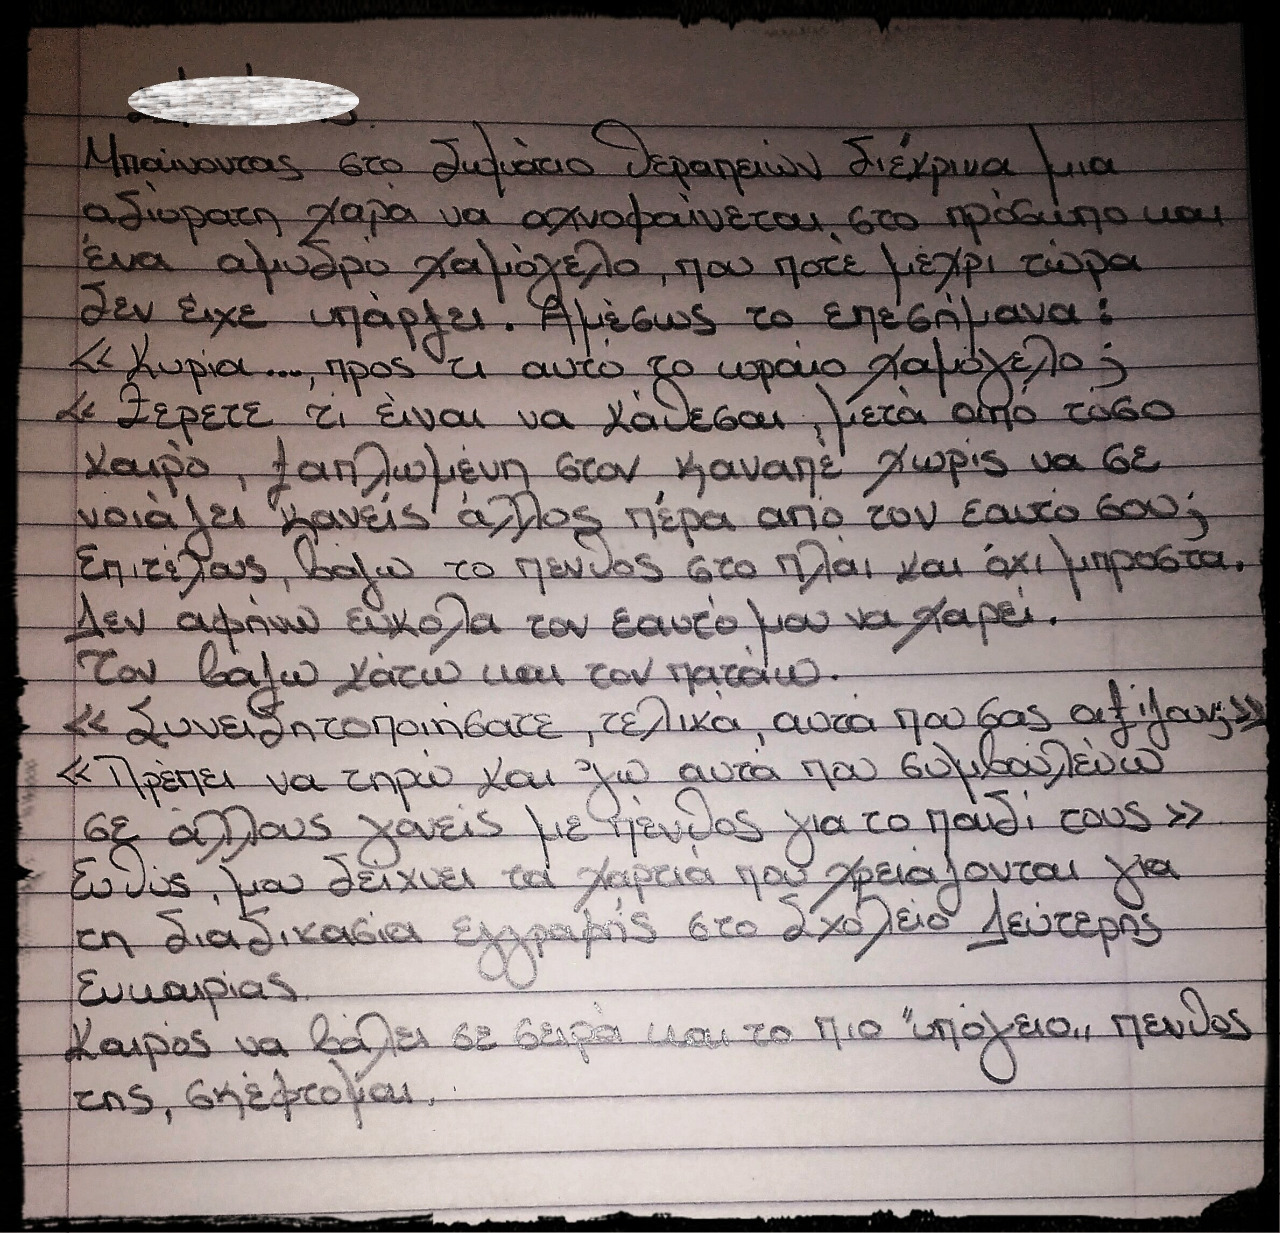 Μπαίνοντας στο δωμάτιο θεραπειών διέκρινα μια
αδιόρατη χαρά να αχνοφαίνεται στο πρόσωπο και
ένα αμυδρό χαμόγελο, που ποτέ μέχρι τώρα
δεν είχε υπάρξει. Αμέσως το επεσήμανα:
«Κυρία..., προς τι αυτό το ωραίο χαμόγελο;
«Ξέρετε τι είναι να κάθεσαι, μετά από τόσο
καιρό, ξαπλωμένη στον καναπέ χωρίς να σε
νοιάζει κανείς άλλος πέρα από τον εαυτό σου;
Επιτέλους, βάζω το πένθος στο πλάι και όχι μπροστά.
Δεν αφήνω εύκολα τον εαυτό μου να χαρεί.
Τον βάζω κάτω και τον πατάω.
«Συνειδητοποιήσατε, τελικά, αυτά που σας αξίζουν;»
«Πρέπει να τηρώ και 'γω αυτά που συμβουλεύω
σε άλλους γονείς με πένθος για το παιδί τους»
Ευθύς, μου δείχνει τα χαρτιά που χρειάζονται για
τη διαδικασία εγγραφής στο Σχολείο Δεύτερης
Ευκαιρίας.
Καιρός να βάλει σε σειρά και το πιο "υπόγειο,, πένθος
της, σκέφτομαι.